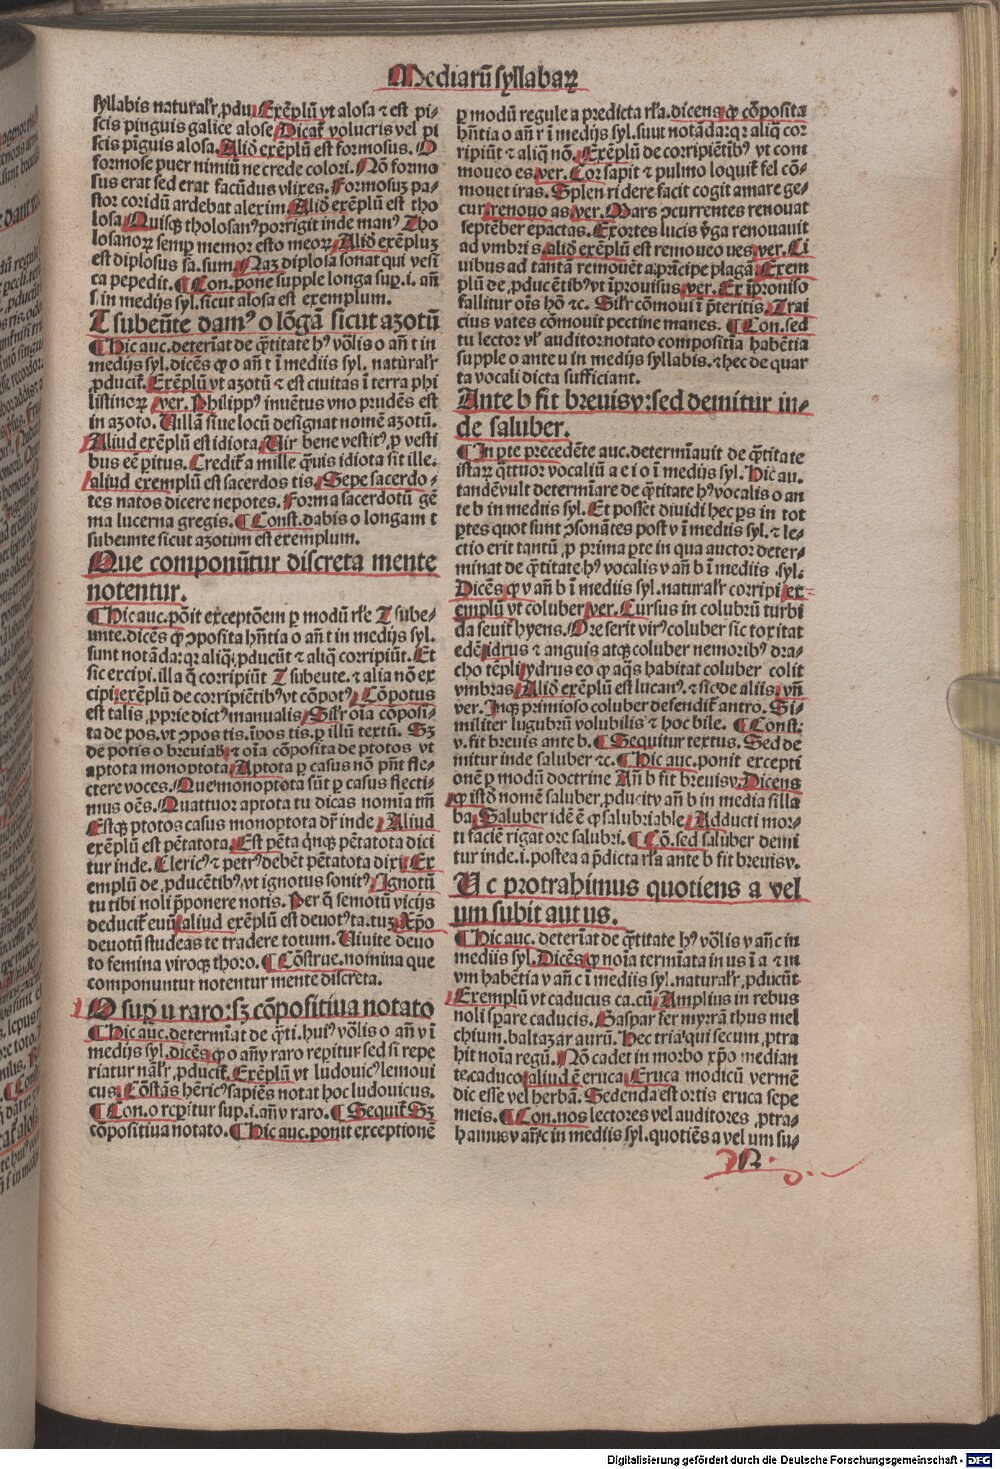 Mediarū syllabaꝝ
syllabis naturalr̄ ꝓdu. Exēplū vt alosa ⁊ est pi-
scis pinguis galice alose. Dicat̄ volucris vel pi
scis pīguis alosa. Aliḋ exēplū est formosus. O
formose puer nimiū ne crede colori. Nō formo
sus erat sed erat facūdus vlixes. Formosuꝫ pa-
stor coridū ardebat alexim. Aliḋ exēplū est tho
losa. Quisqꝫ tholosanꝰ porrigit inde manꝰ. Tho
losanoꝝ semꝑ memor esto meoꝝ. Aliḋ exēpluꝫ
est diplosus sa. sum. Naꝫ diplosa sonat qui vesi
ca pepedit. ¶ Con. pone supple longa sup. i. añ
s. in medijs syl. sicut alosa est exemplum.
T subeūte damꝰ o lōgā sicut azotū
¶ Hic auc. determīat de q̄titate hꝰ vōlis o añ t in
medijs syl. dicēs qꝙ o añ t ī mediis syl. naturalr̄
ꝓducit̄. Exēplū vt azotū ⁊ est ciuitas ī terra phi
listinoꝝ. ver. Philippꝰ inuētus vno prudēs est
in azoto. Uillā siue locū designat nomē azotū.
Aliud exēplū est idiota. Uir bene vestitꝰ ꝓ vesti
bus eē ꝑitus. Credit̄ a mille q̄uis idiota sit ille.
aliud exemplū est sacerdos tis. Sepe sacerdo-
tes natos dicere nepotes. Forma sacerdotū gē
ma lucerna gregis. ¶ Const. dabis o longam t
subeunte sicut azotum est exemplum.
Que componūtur discreta mente
notentur.
¶ Hic auc. pōit exceptōem ꝑ modū rl'e T sube-
unte. dicēs qꝙ ꝯposita hn̄tia o añ t in medijs syl.
sunt notāda: qꝛ aliq̄ ꝓducūt ⁊ aliq̄ corripiūt. Et
sic excipi. illa q̄ corripiūt T subeute. ⁊ alia nō ex
cipi. exēplū de corripiētibꝰ vt cōpotꝰ. Cōpotus
est talis ꝓprie dictꝰ manualis. Silr̄ oīa cōposi-
ta de pos. vt ꝯpos tis. īpos tis. ꝑ illū textū. Sꝫ
de potis o breuiabꝰ ⁊ oīa cōposita de ptotos vt
aptota monoptota. Aptota ꝑ casus nō pn̄t fle-
ctere voces. Que monoptota sūt ꝑ casus flecti-
mus oēs. Quattuor aptota tu dicas nomīa tm̄
Estqꝫ ptotos casus monoptota dr̄ inde. Aliud
exēplū est pētatota. Est pēta q̄nqꝫ pētatota dici
tur inde. Clericꝰ ⁊ petrꝰ debēt pētatota dici. Ex
emplū de ꝓducētibꝰ. vt ignotus sonitꝰ. Ignotū
tu tibi noli p̄ponere notis. Per q̄ semotū vicijs
deducit̄ euū. aliud exēplū est deuotꝰ ta. tuꝫ. Xp̄o
deuotū studeas te tradere totum. Uiuite deuo
to femina viroqꝫ thoro. ¶ Cōstrue. nomina que
componuntur notentur mente discreta.
O suꝑ u raro: sꝫ cōpositiua notato
¶ Hic auc. determīat de q̄ti. huiꝰ vōlis o añ v ī
medijs syl. dicēs qꝙ o añ v raro reꝑitur sed si repe
riatur nal'r ꝓducit̄. Exēplū vt ludouicꝰ lemoui
cus. Cōstās hēricꝰ sapiēs notat hoc ludouicus.
¶ Con. o reꝑitur sup. i. añ v raro. ¶ Sequit̄ Sꝫ
cōpositiua notato. ¶ Hic auc. ponit exceptionē
ꝑ modū regule a predicta rl'a. dicens qꝙ cōposita
hn̄tia o añ r ī medijs syl. sunt notāda: qꝛ aliq̄ cor
ripiūt ⁊ aliq̄ nō. Exēplū de corripiētibꝰ vt com
moueo es. ver. Cor sapit ⁊ pulmo loquit̄ fel cō-
mouet iras. Splen ridere facit cogit amare ge-
cur. renouo as. ver. Mars ꝯcurrentes renouat
septēber epactas. Exortes lucis v̓ga renouauit
ad vmbris. aliḋ exēplū est remoueo ues. ver. Ci
uibus ad tantā remouēt a p̄rcipe plagā. Exem
plū de ꝓducētibꝰ vt īprouisus. ver. Ex īprouiso
fallitur oīs hō ⁊c. Silr̄ cōmoui ī p̄teritis. Trai
cius vates cōmouit pectine manes. ¶ Con. sed
tu lector vl' auditor notato compositiua habētia
supple o ante u in medijs syllabis. ⁊ hec de quar
ta vocali dicta sufficiant.
Ante b fit breuis v: sed demitur in-
de saluber.
¶ In ꝑte precedēte auc. determīauit de q̄titate
istaꝝ q̄ttuor vocaliū a e i o ī medijs syl. Hic au.
tandē vult determīare de q̄titate hꝰ vocalis v an
te b in mediis syl. Et posset diuidi hec ꝑs in tot
ꝑtes quot sunt ꝯsonātes post v ī mediis syl. ⁊ le-
ctio erit tantū ꝓ prima ꝑte in qua auctor deter-
minat de q̄titate hꝰ vocalis v añ b ī mediis syl.
Dicēs qꝙ v añ b ī mediis syl. naturalr̄ corripi. ex-
emplū vt coluber. ver. Cursus in colubrū turbi
da seuit hyens. Ore ferit virꝰ coluber sic toxitat
edē. idrus ⁊ anguis atqꝫ coluber nemoribꝰ dra-
cho tēpli. ydrus eo qꝙ aq̄s habitat coluber colit
vmbras. Aliḋ exēplū est lucanꝰ. ⁊ sic de aliis. vn̄
ver. Inqꝫ primioso coluber defendit̄ antro. Si-
militer lugubrū volubilis ⁊ hoc bile. ¶ Const:
v. fit breuis ante b. ¶ Sequitur textus. Sed de
mitur inde saluber ⁊c. ¶ Hic auc. ponit excepti
onē ꝑ modū doctrine Añ b fit breuis v. Dicens
qꝙ istḋ nomē saluber ꝓducit v añ b in media silla
ba. Saluber idē ē qꝙ salubriable. Adducti mor-
ti faciē rigat ore salubri. ¶ Cō. sed saluber demi
tur inde. i. postea a p̄dicta rl'a ante b fit breuis v.
U c protrahimus quotiens a vel
um subit aut us.
¶ Hic auc. determīat de q̄titate hꝰ vōlis v añ c in
mediis syl. Dicēs qꝙ noīa termīata in us ī a ⁊ in
vm habētia v añ c ī mediis syl. naturalr̄ ꝓducūt.
Exemplū vt caducus ca. cū. Amplius in rebus
noli sꝑare caducis. Gaspar fer myrrā thus mel
chium. baltazar aurū. Hec tria qui secum ꝓtra
hit noīa regū. Nō cadet in morbo xp̄o median
te. caduco. aliud ē eruca. Eruca modicū vermē
dic esse vel herbā. Sedenda est ortis eruca sepe
meis. ¶ Con. nos lectores vel auditores ꝓtra-
hamus v añ c in mediis syl. quotiēs a vel um su-
Digitalisierung gefördert durch die Deutsche Forschungsgemeinschaft - DFG